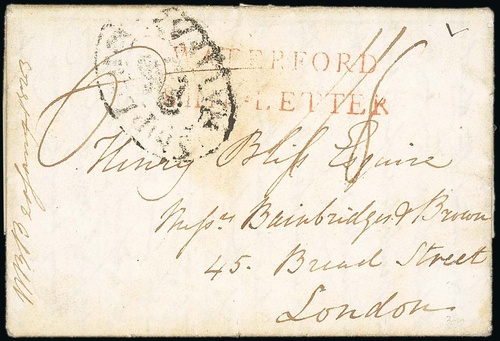 WATERFORD
SHIP-LETTER
Henry Bliss Esquire
Messrs Bainbridges & Brown
45. Bread Street
London